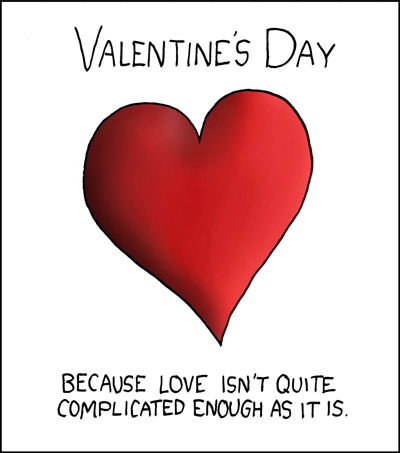 VALENTINE'S DAY
BECAUSE LOVE ISN'T QUITE
COMPLICATED ENOUGH AS IT IS.